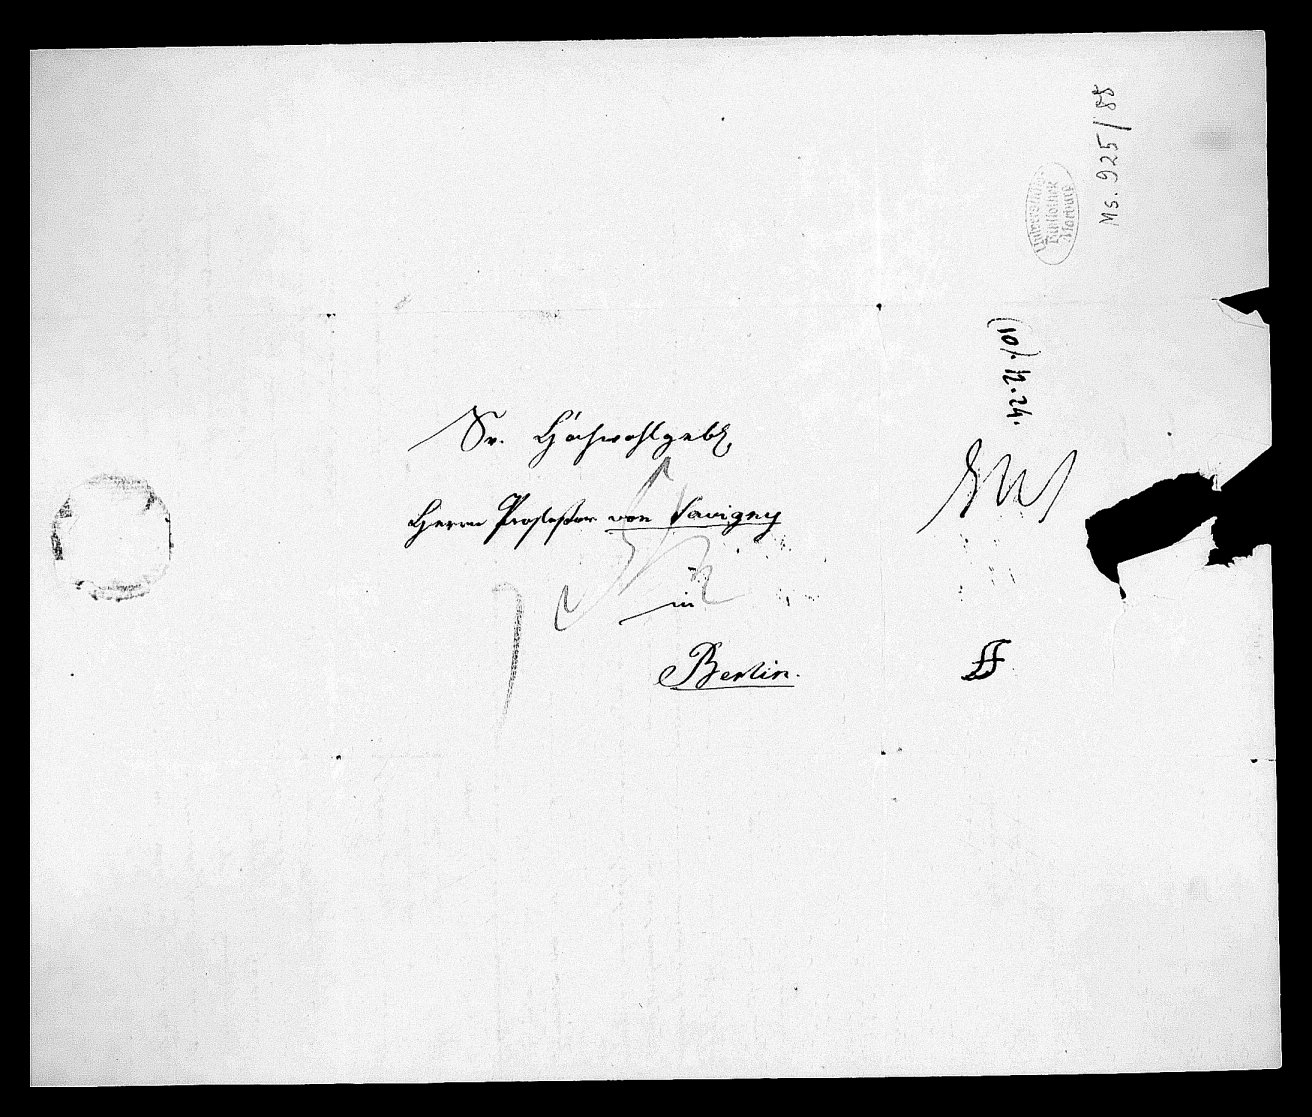 Ms. 925/88
Universitäts
Bibliothek
Marburg
(10/.12.24.
Sr. Hochwohlgeb.
Herrn Professor von Savigny
in
Berlin.